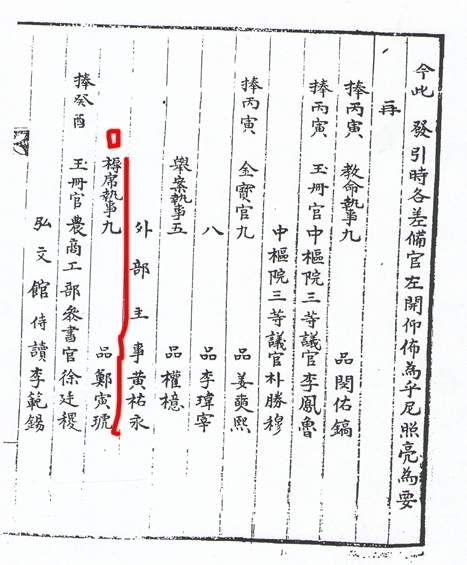 今此 發引時各差備官左開仰佈為乎尼照亮為要
再
捧丙寅 教命執事九 品閔佑鎬
捧丙寅 玉冊官中樞院三等議官李鳳魯
中樞院三等議官朴勝穆
捧丙寅 金寶官九 品姜奭熙
八 品李瑋宰
擧案執事五 品權檍
外部主事黃祐永
褥席執事九 品鄭寅琥
捧癸酉 玉冊官農商工部叅書官徐廷稷
弘文館侍讀李範錫